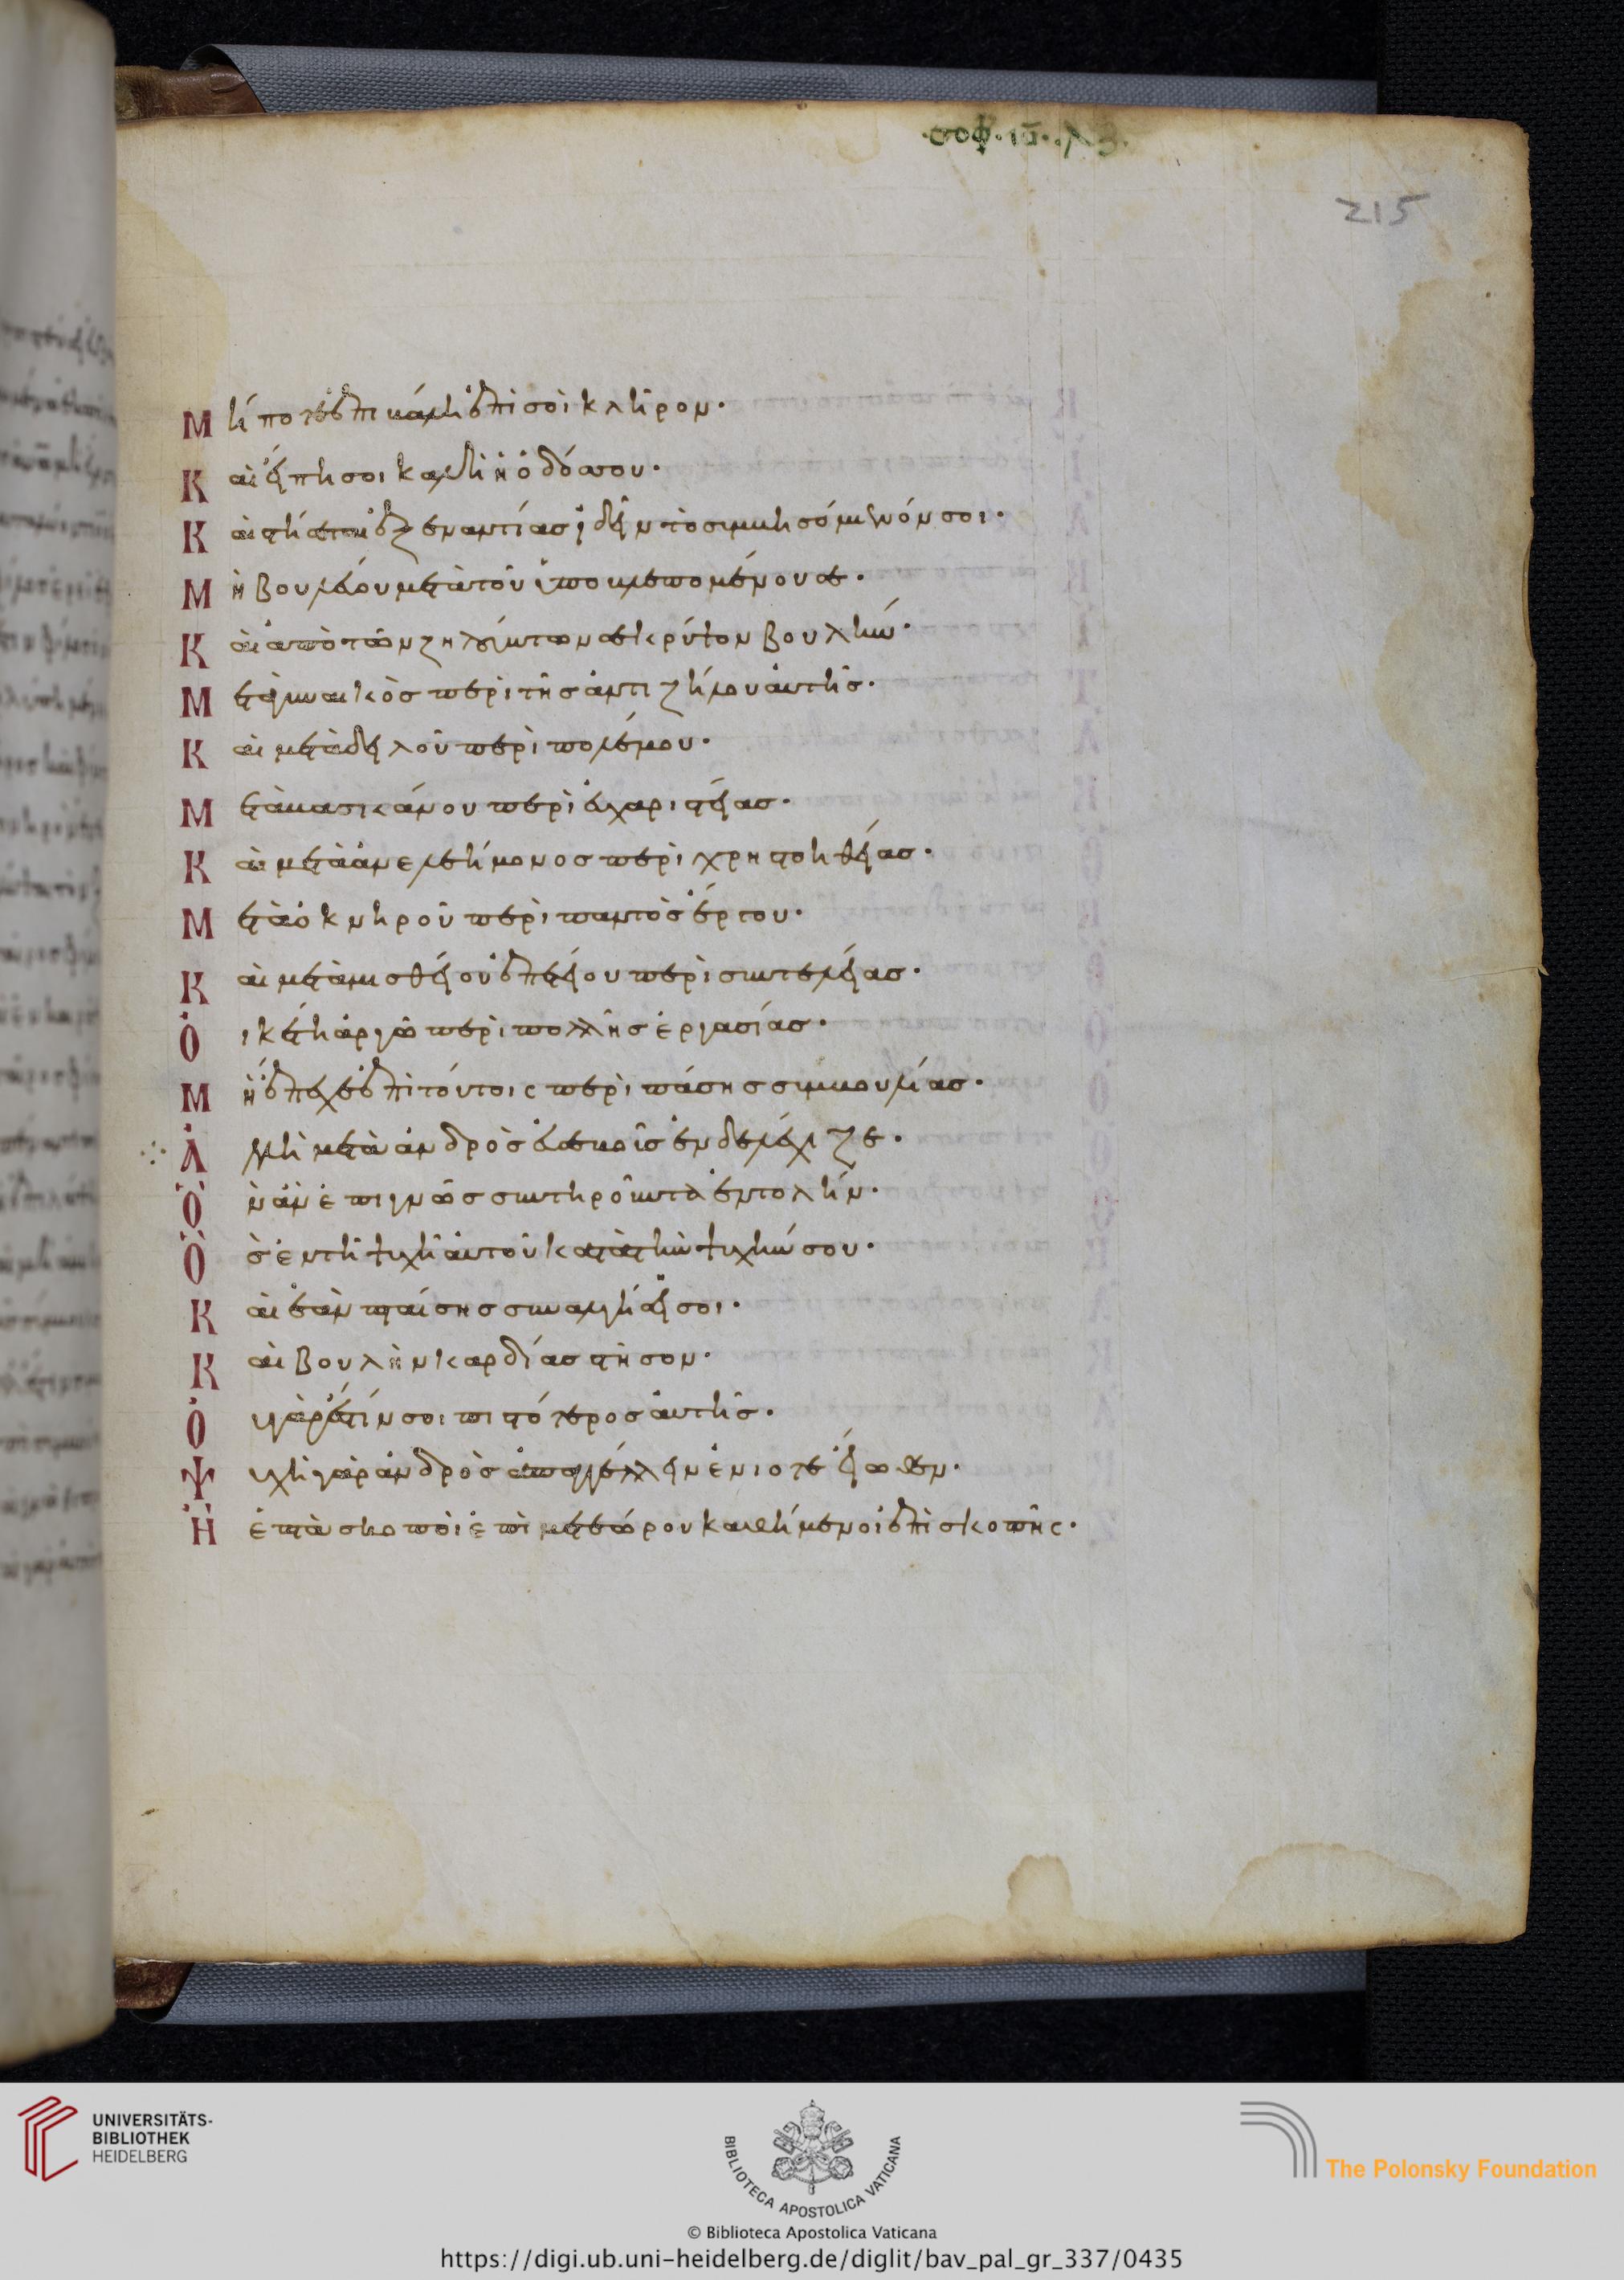 ·σοφ·ιῡ·
215
Μήποτε ἐπικάμη ἐπὶ σοὶ κλῆρον·
Καὶ εἴπη σοι καλὴ ἡ ὁδός σου·
Καὶ στήσεται ἐξ εναντίας ἰδεῖν τὸ συμβησόμενόν σοι·
Μὴ βουλεύου μετὰ τοῦ ὑποβλεπομένου σε·
Καὶ ἀπὸ τῶν ζηλούντων σε κρύψον βουλήν·
Μετὰ γυναικὸς περὶ τῆς ἀντιζήλου αὐτῆς·
Καὶ μετὰ δειλοῦ περὶ πολέμου·
Μετὰ βασκάνου περὶ εὐχαριστείας·
Καὶ μετὰ ἀνελεήμονος περὶ χρηστοηθείας·
Μετὰ ὀκνηροῦ περὶ παντὸς ἔργου·
Καὶ μετὰ μισθείου ἐπετείου περὶ συντελείας·
Ὀικέτη ἀργῶ περὶ πολλῆς ἐργασίας·
Μὴ ἔπεχε ἐπὶ τούτοις περὶ πάσης συμβουλίας·
Ἀλλὴ μετὰ ἀνδρὸς εὐσεβοῦς ἐνδελέχιζε·
Ὃν ἂν ἐπιγνῶς συντηροῦντα ἐντολήν·
Ὃς ἐν τῆ ψυχῆ αὐτοῦ κατὰ τὴν ψυχήν σου·
Καὶ ἐὰν πταίσης συναλγήσει σοι·
Καὶ βουλὴν καρδίας στῆσον·
Ὀυ γὰρ ἔστίν σοι πιστότερος αὐτῆς·
Ψυχὴ γὰρ ἀνδρὸς ἀπαγγέλλειν ἐνίοτε εἴωθεν·
Ἢ ἑπτὰ σκοποὶ ἐπὶ μετεώρου καθήμενοι ἐπὶ σκοπῆς·
UNIVERSITÄTS-
BIBLIOTHEK
HEIDELBERG
BIBLIOTECA APOSTOLICA VATICANA
The Polonsky Foundation
© Biblioteca Apostolica Vaticana
https://digi.ub.uni-heidelberg.de/diglit/bav_pal_gr_337/0435